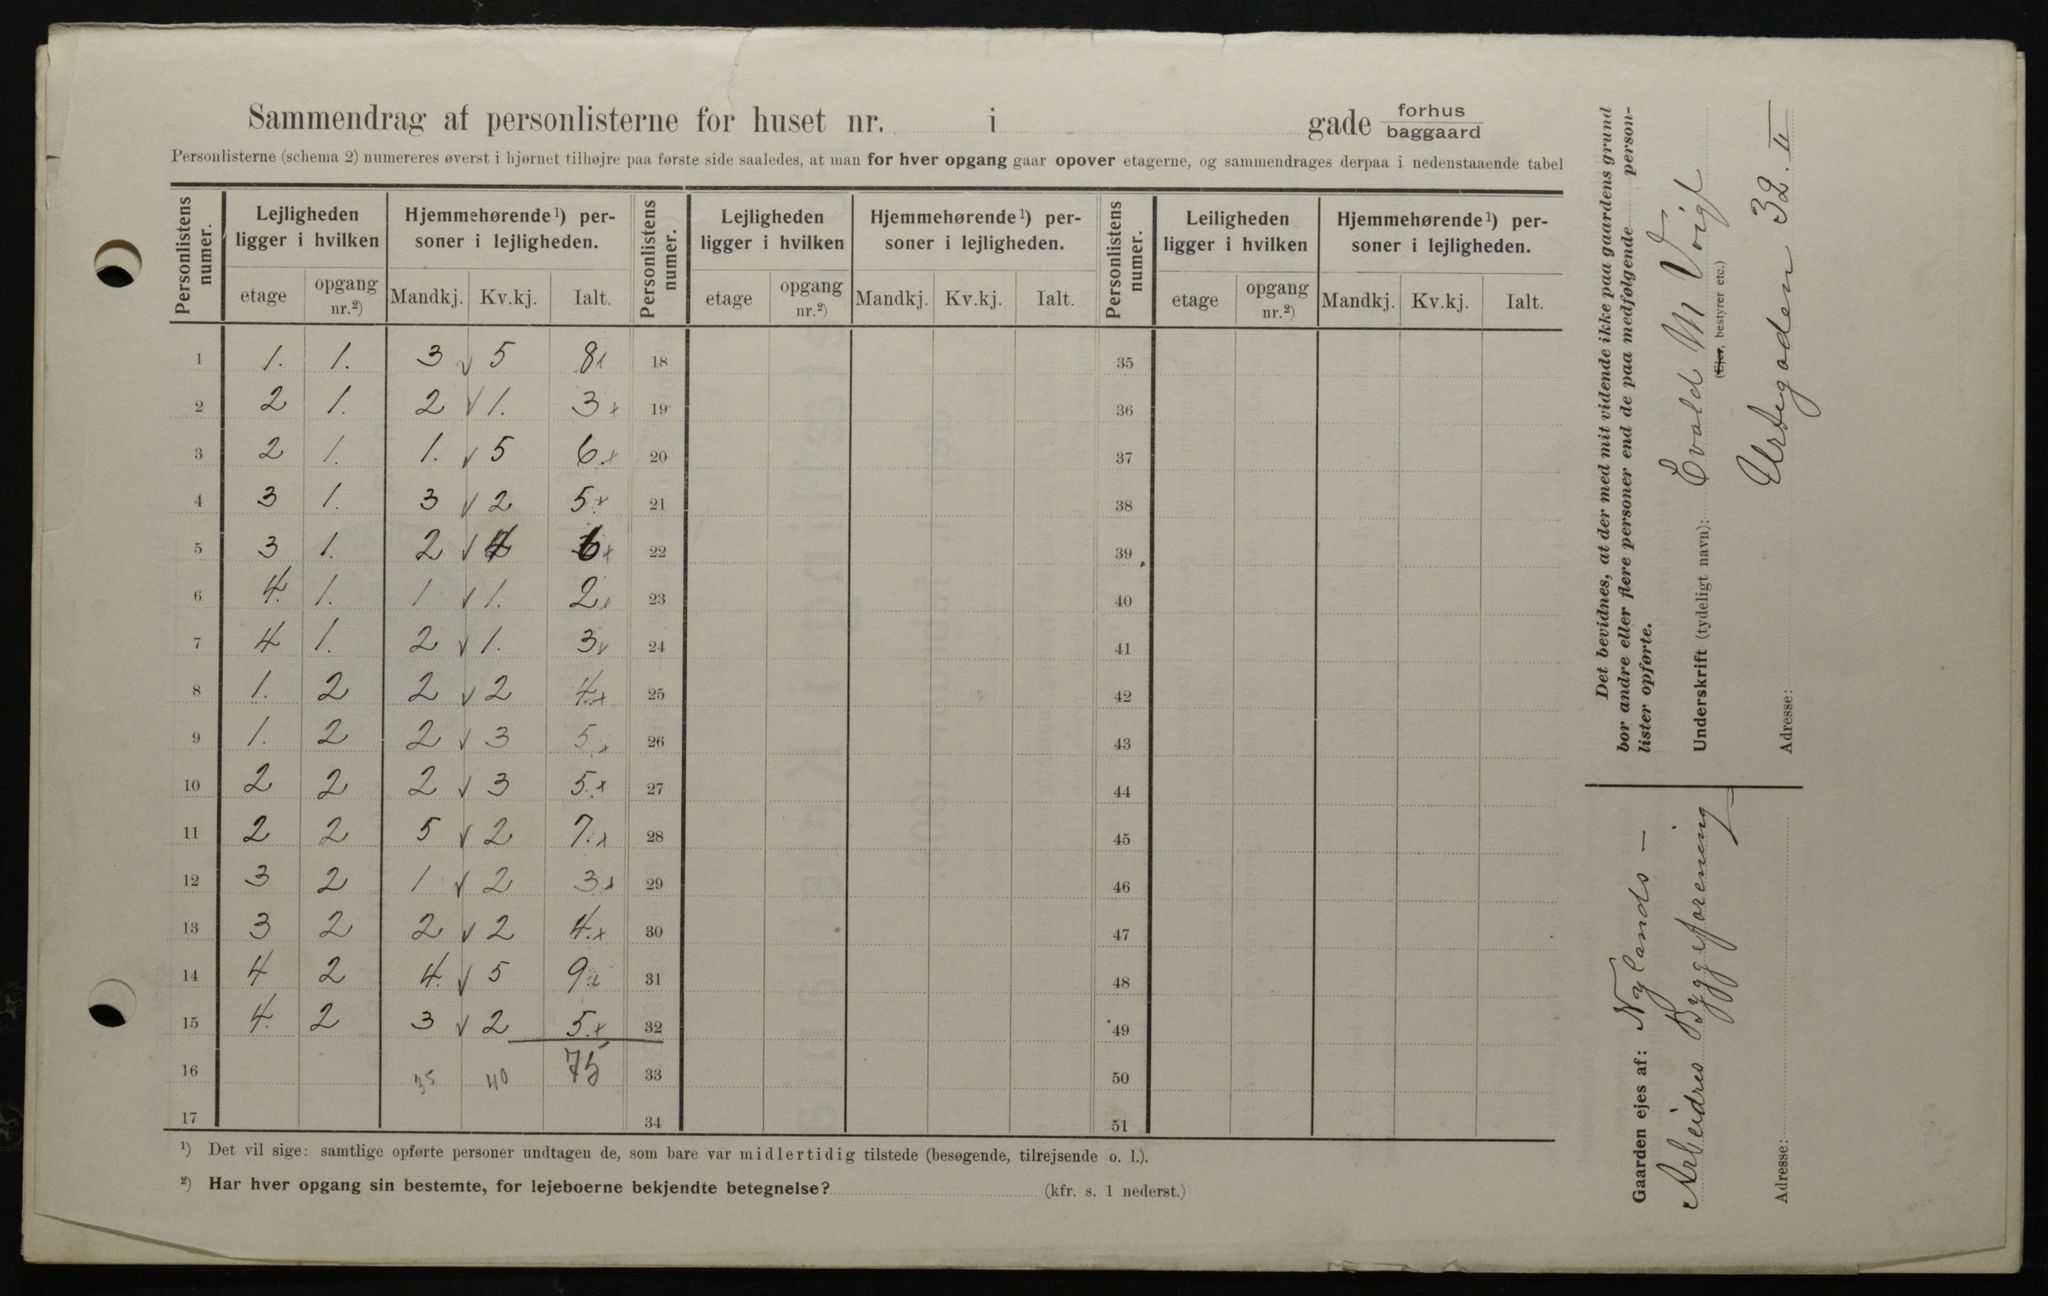 Sammendrag af personlisterne for huset nr. i gade forhus baggaard
Personlisterne (schema 2) numereres øverst i hjørnet tilhøjre paa første side saaledes, at man for hver opgang gaar opover etagerne, og sammendrages derpaa i nedenstaaende tabel
Personlistens numer. Lejligheden ligger i hvilken Hjemmehørende ¹) personer i lejligheden. Personlistens numer. Lejligheden ligger i hvilken Hjemmehørende ¹) personer i lejligheden. Personlistens numer. Leiligheden ligger i hvilken Hjemmehørende ¹) personer i lejligheden.
etage opgang nr.²) Mandkj. Kv.kj. Ialt. etage opgang nr.²) Mandkj. Kv.kj. Ialt. etage opgang nr.²) Mandkj. Kv.kj. Ialt.
1 1. 1. 3 v 5 8 18 35
2 2 1. 2 v 1. 3 x 19 36
3 2 1. 1. v 5 6. x 20 37
4 3 1. 3 v 2 5. x 21 38
5 3 1. 2 v 4 6 x 22 39
6 4. 1. 1 v 1. 2 23 40
7 4 1. 2 v 1. 3 v 24 41
8 1. 2 2 v 2 4. x 25 42
9 1. 2 2 v 3 5. x 26 43
10 2 2 2 v 3 5. x 27 44
11 2 2 5 v 2 7. x 28 45
12 3 2 1 v 2 3 x 29 46
13 3 2 2 v 2 4. x 30 47
14 4 2 4. v 5 9. 31 48
15 4. 2 3 v 2 5. x 32 49
16 35 40 75 33 50
17 34 51
¹) Det vil sige: samtlige opførte personer undtagen de, som bare var midlertidig tilstede (besøgende, tilrejsende o. l.).
²) Har hver opgang sin bestemte, for lejeboerne bekjendte betegnelse? (kfr. s. 1 nederst.)
Det bevidnes, at der med mit vidende ikke paa gaardens grund
bor andre eller flere personer end de paa medfølgende person-
lister opførte.
Underskrift (tydeligt navn): Evald M Voigt
(Ejer, bestyrer etc.)
Adresse: Urtegaden 32. II
Gaarden ejes af: Nylands —
Arbeidres Byggeforening
Adresse: